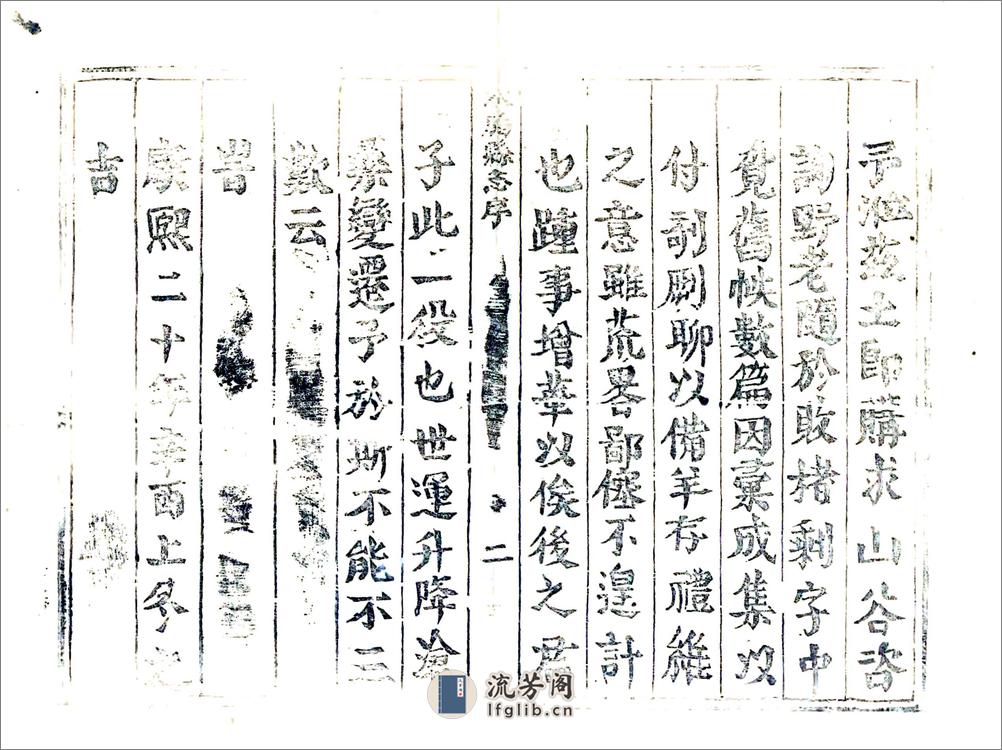 予涖茲土即購求山谷咨
詢野老隨於敗楮剩字中
覓舊帙數篇因彙成集以
付剞劂聊以備羊存禮維
之意雖荒畧鄙僿不遑計
也踵事增華以俟後之君
縣志序 二
子此一役也世運升降滄
桑變遷予於斯不能不三
歎云
旹
康熙二十年辛酉上冬之
吉
流芳阁
lfglib.cn